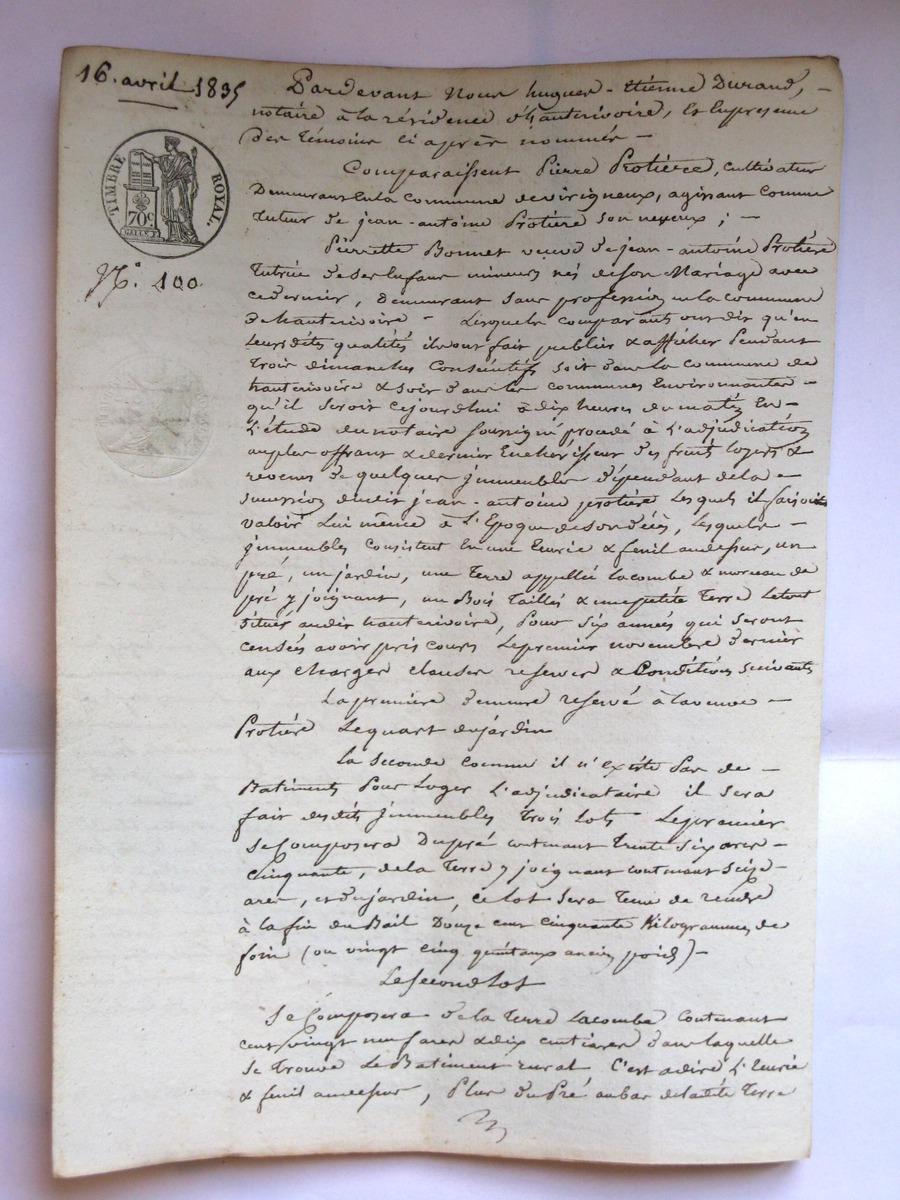 16. avril 1835
TIMBRE ROYAL.
70c
N.° 100
Pardevant Nous hugues-Etienne Durand,
notaire à la résidence d'hauterivoire, et En presence
Des témoins ci après nommés
Comparaissent Pierre Protière, cultivateur
Demeurant En la Commune de virigneux, agissant comme
tuteur de jean-antoine Protière son neveux ;
Pierrette Bonnet veuve de jean-antoine Protière
tutrice de ses Enfans mineurs nés de son Mariage avec
ce dernier, demeurant sans profession en la commune
d'hauterivoire - Lesquels comparants ont dit qu'en
leurs dites qualités ils ont fait publier & afficher Pendant
trois dimanches Consécutifs soit dans la commune de
hauterivoire & soit dans les communes Environnantes
qu'il seroit cejourdhui à dix heures du matin En
L'étude du notaire soussigné procédé à L'adjudication
au plus offrant & dernier Encherisseur des fruits loyers &
revenus de quelques jmmeubles dépendant de la
succession dudit jean-antoine protière Lesquels il faisoit
valoir Lui même à L'Epoque de son décès, Lesquels
jmmeubles consistent En une Ecurie & fenil audessus, un
pré, un jardin, une terre appellée Lacombe & morceau de
pré y joignant, un Bois taillis & une petite terre Le tout
situés audit hauterivoire, Pour six années qui seront
censées avoir pris cours Le premier novembre dernier
aux charges clauses reserves & Conditions suivants
La première demeure reservé à la veuve
Protière Le quart du jardin
La seconde comme il n'existe Pas de
Batiments Pour Loger L'adjudicataire il sera
fait desdits jmmeubles trois Lots Le premier
se Composera Du pré contenant trente six ares
cinquante, de la terre y joignant contenant seize
ares, et du jardin, ce lot sera tenu de rendre
à la fin du Bail Douze cent cinquante Kilogrammes de
foin (ou vingt cinq quintaux ancien poids)
Le second Lot
Se Composera de la terre Lacombe contenant
cent vingt neuf ares & dix centiares dans laquelle
se trouve Le Batiment rural C'est adire L'Ecurie
& fenil audessus, Plus du Pré au bas de ladite terre